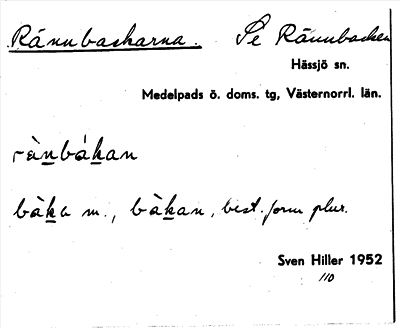 Rännbackarna. Se Rännbacken
Hässjö sn.
Medelpads ö. doms. tg, Västernorrl. län.
rȁǹbákan
bàka m., bàkan, best. form plur.
Sven Hiller 1952
110